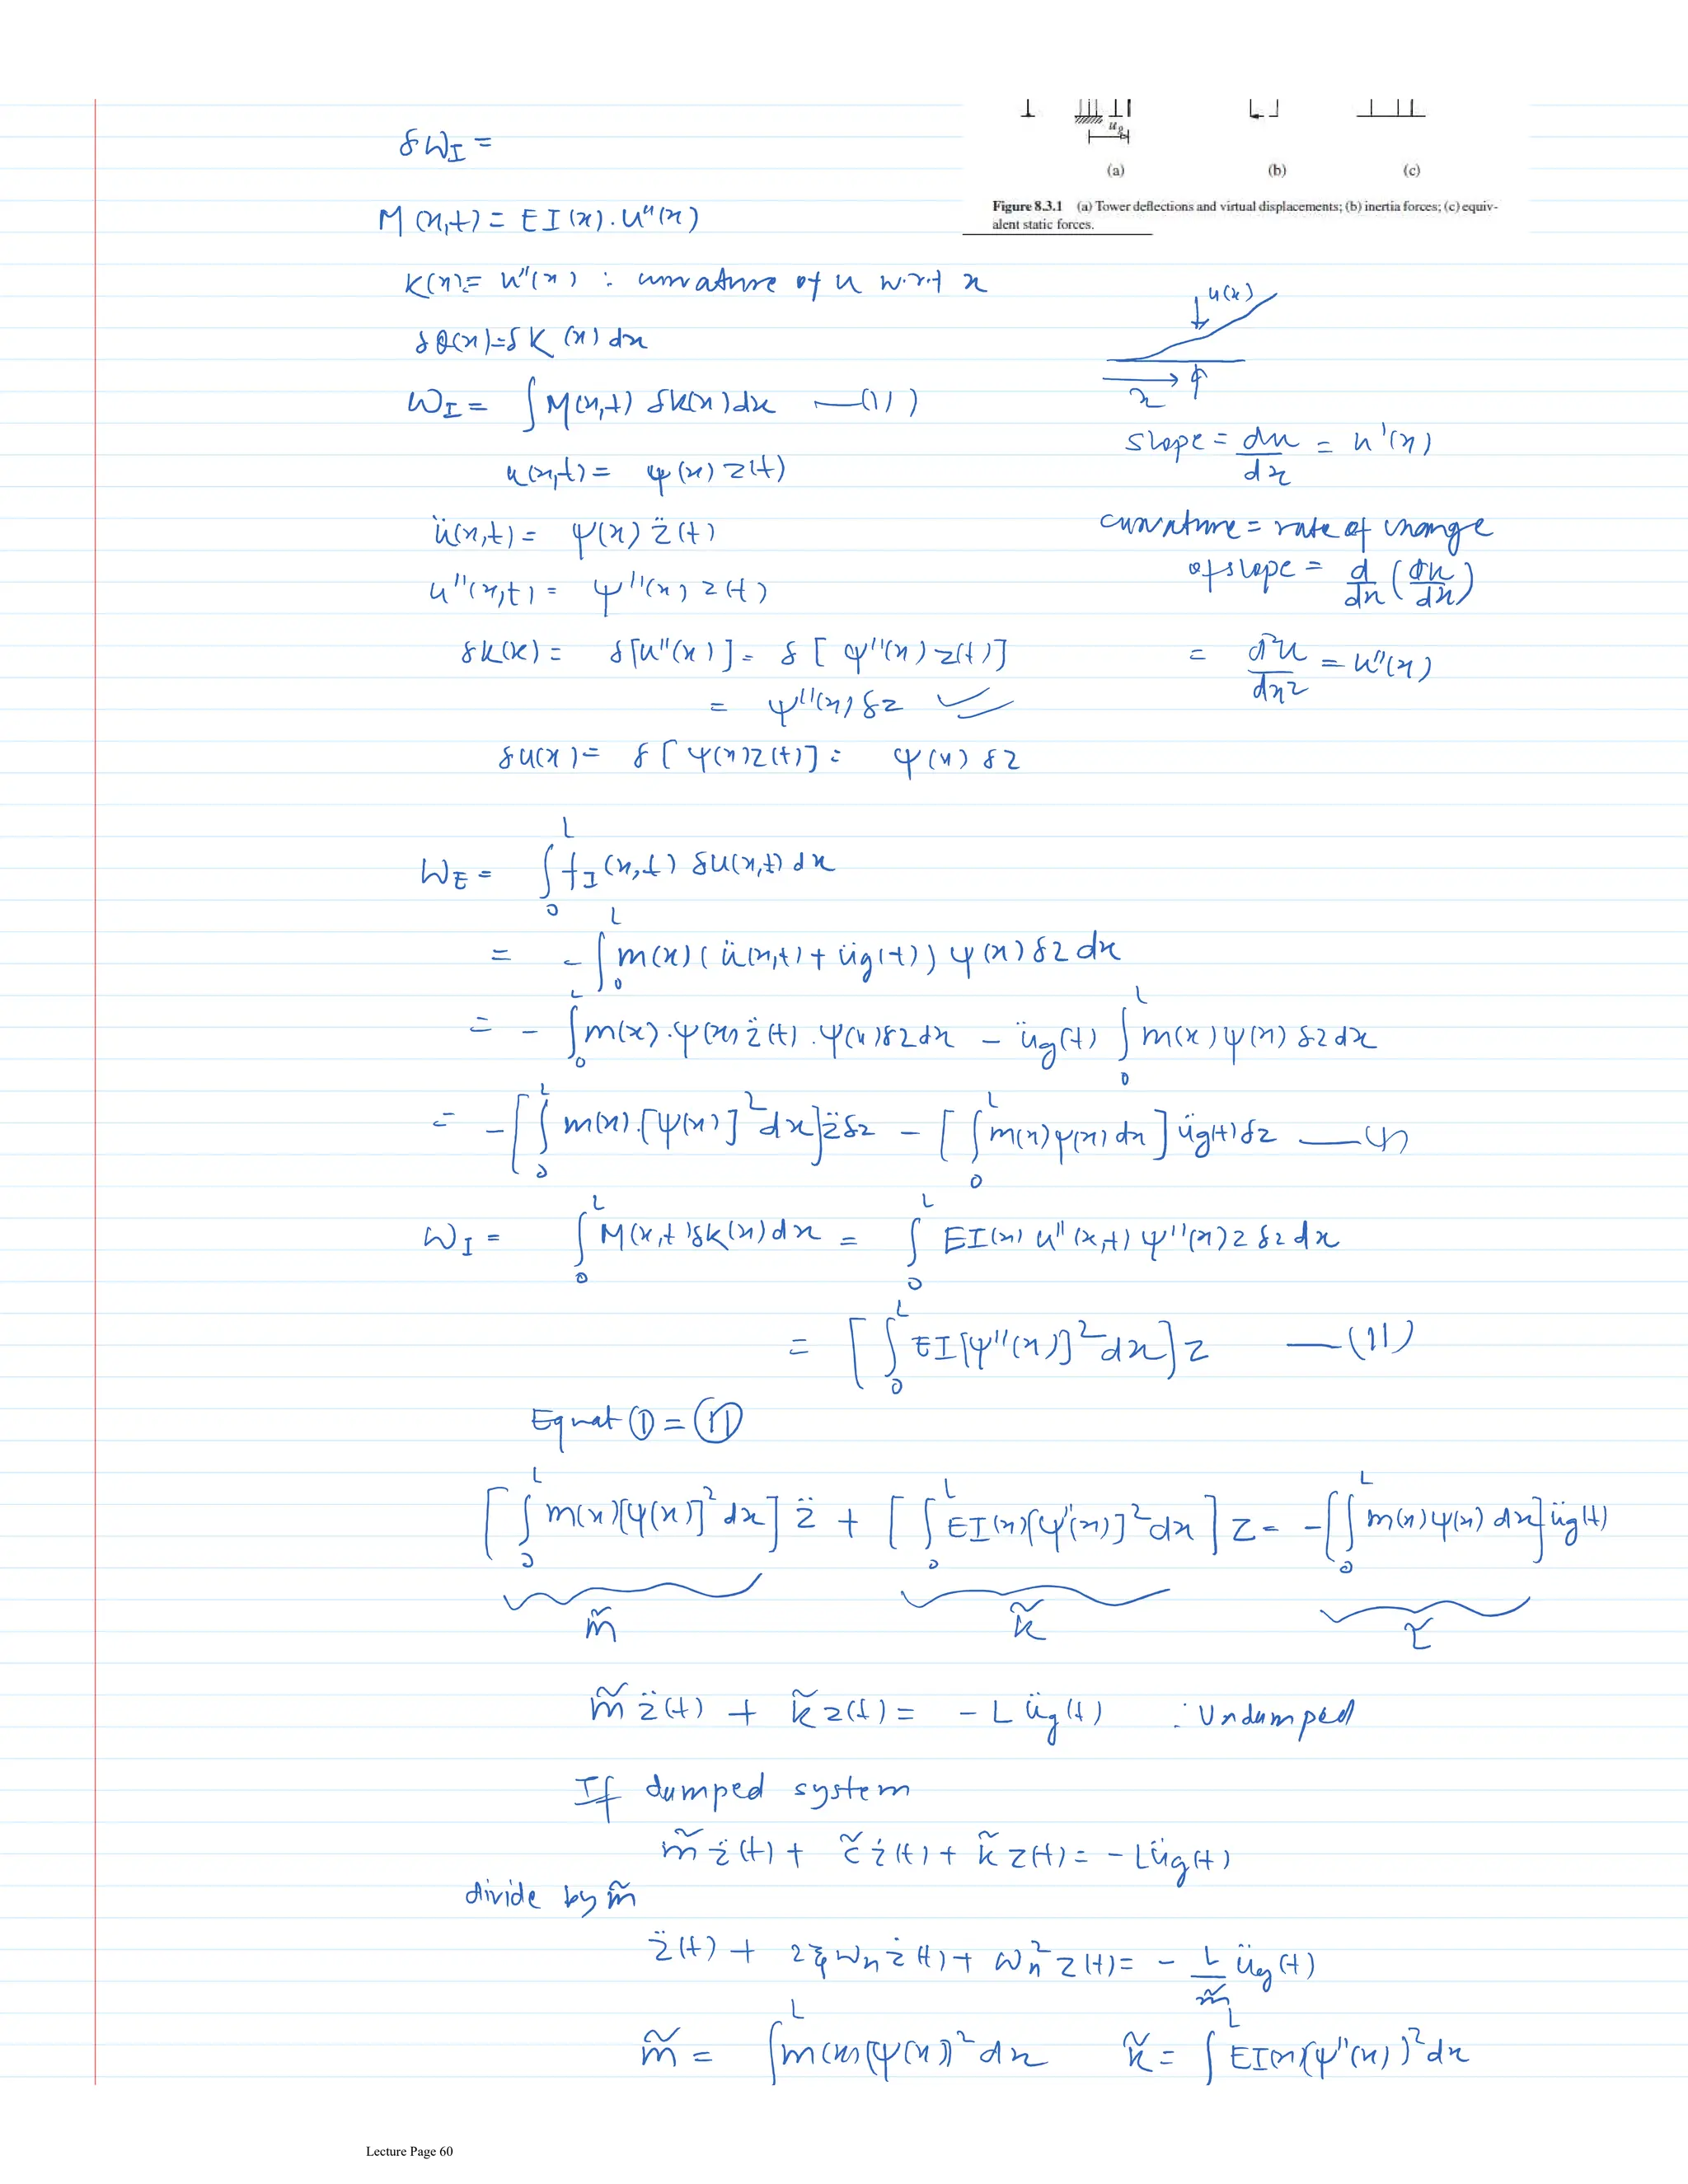 u_g
(a) (b) (c)
Figure 8.3.1 (a) Tower deflections and virtual displacements; (b) inertia forces; (c) equiv-
alent static forces.
δW_I =
M(x,t) = EI(x).u''(x)
K(x) = u''(x) : curvature of u w.r.t x
δθ(x) = δK(x) dx
W_I = ∫ M(x,t) δk(x) dx —(11)
u(x,t) = ψ(x) z(t)
ü(x,t) = ψ(x) z̈(t)
u''(x,t) = ψ''(x) z(t)
δk(x) = δ[u''(x)] = δ[ψ''(x) z(t)]
= ψ''(x) δz ✓
δu(x) = δ[ψ(x) z(t)] = ψ(x) δz
u(x)
x
slope = du/dx = u'(x)
curvature = rate of change
of slope = d/dx (du/dx)
= d²u/dx² = u''(x)
W_E = ∫₀ᴸ f_I(x,t) δu(x,t) dx
= -∫₀ᴸ m(x)(ü(x,t) + üg(t)) ψ(x) δz dx
= - ∫₀ᴸ m(x).ψ(x) z̈(t).ψ(x) δz dx - üg(t) ∫₀ᴸ m(x) ψ(x) δz dx
= -[∫₀ᴸ m(x).[ψ(x)]² dx] z̈ δz - [∫₀ᴸ m(x) ψ(x) dx] üg(t) δz —(1)
W_I = ∫₀ᴸ M(x,t) δk(x) dx = ∫₀ᴸ EI(x) u''(x,t) ψ''(x) z δz dx
= [∫₀ᴸ EI[ψ''(x)]² dx] z —(11)
Equat ① = ⑪
[∫₀ᴸ m(x)[ψ(x)]² dx] z̈ + [∫₀ᴸ EI(x)[ψ''(x)]² dx] z = -[∫₀ᴸ m(x) ψ(x) dx] üg(t)
m̃ k̃ L̃
m̃ z̈(t) + k̃ z(t) = - L üg(t) : Undamped
If dumped system
m̃ z̈(t) + c̃ ż(t) + k̃ z(t) = - L üg(t)
divide by m̃
z̈(t) + 2ξ ωn ż(t) + ωn² z(t) = - L/m̃ üg(t)
m̃ = ∫ᴸ m(x)(ψ(x))² dx k̃ = ∫ᴸ EI(x)(ψ''(x))² dx
Lecture Page 60